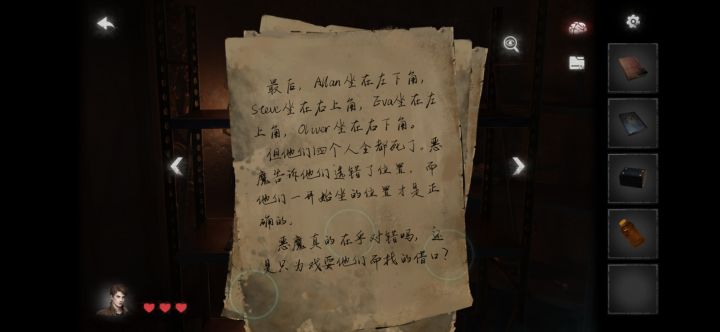 最后，Allan坐在左下角，
Steve坐在右上角，Eva坐在左
上角，Oliver坐在右下角。
但他们四个人全都死了。恶
魔告诉他们选错了位置，而
他们一开始坐的位置才是正
确的。
恶魔真的在乎对错吗，这
是只为戏耍他们而找的借口？